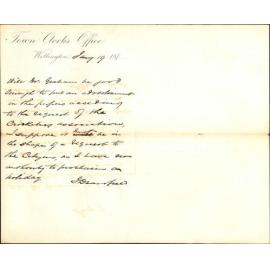 Town Clerk's Office
Wellington, Jany 19 187
Will Mr. Graham be good
enough to put an advertisement
in the papers according
to the request of the
Cricketers association,
I suppose it must be in
the shape of a request to
the Citizens, as I have no
authority to proclaim a
holiday